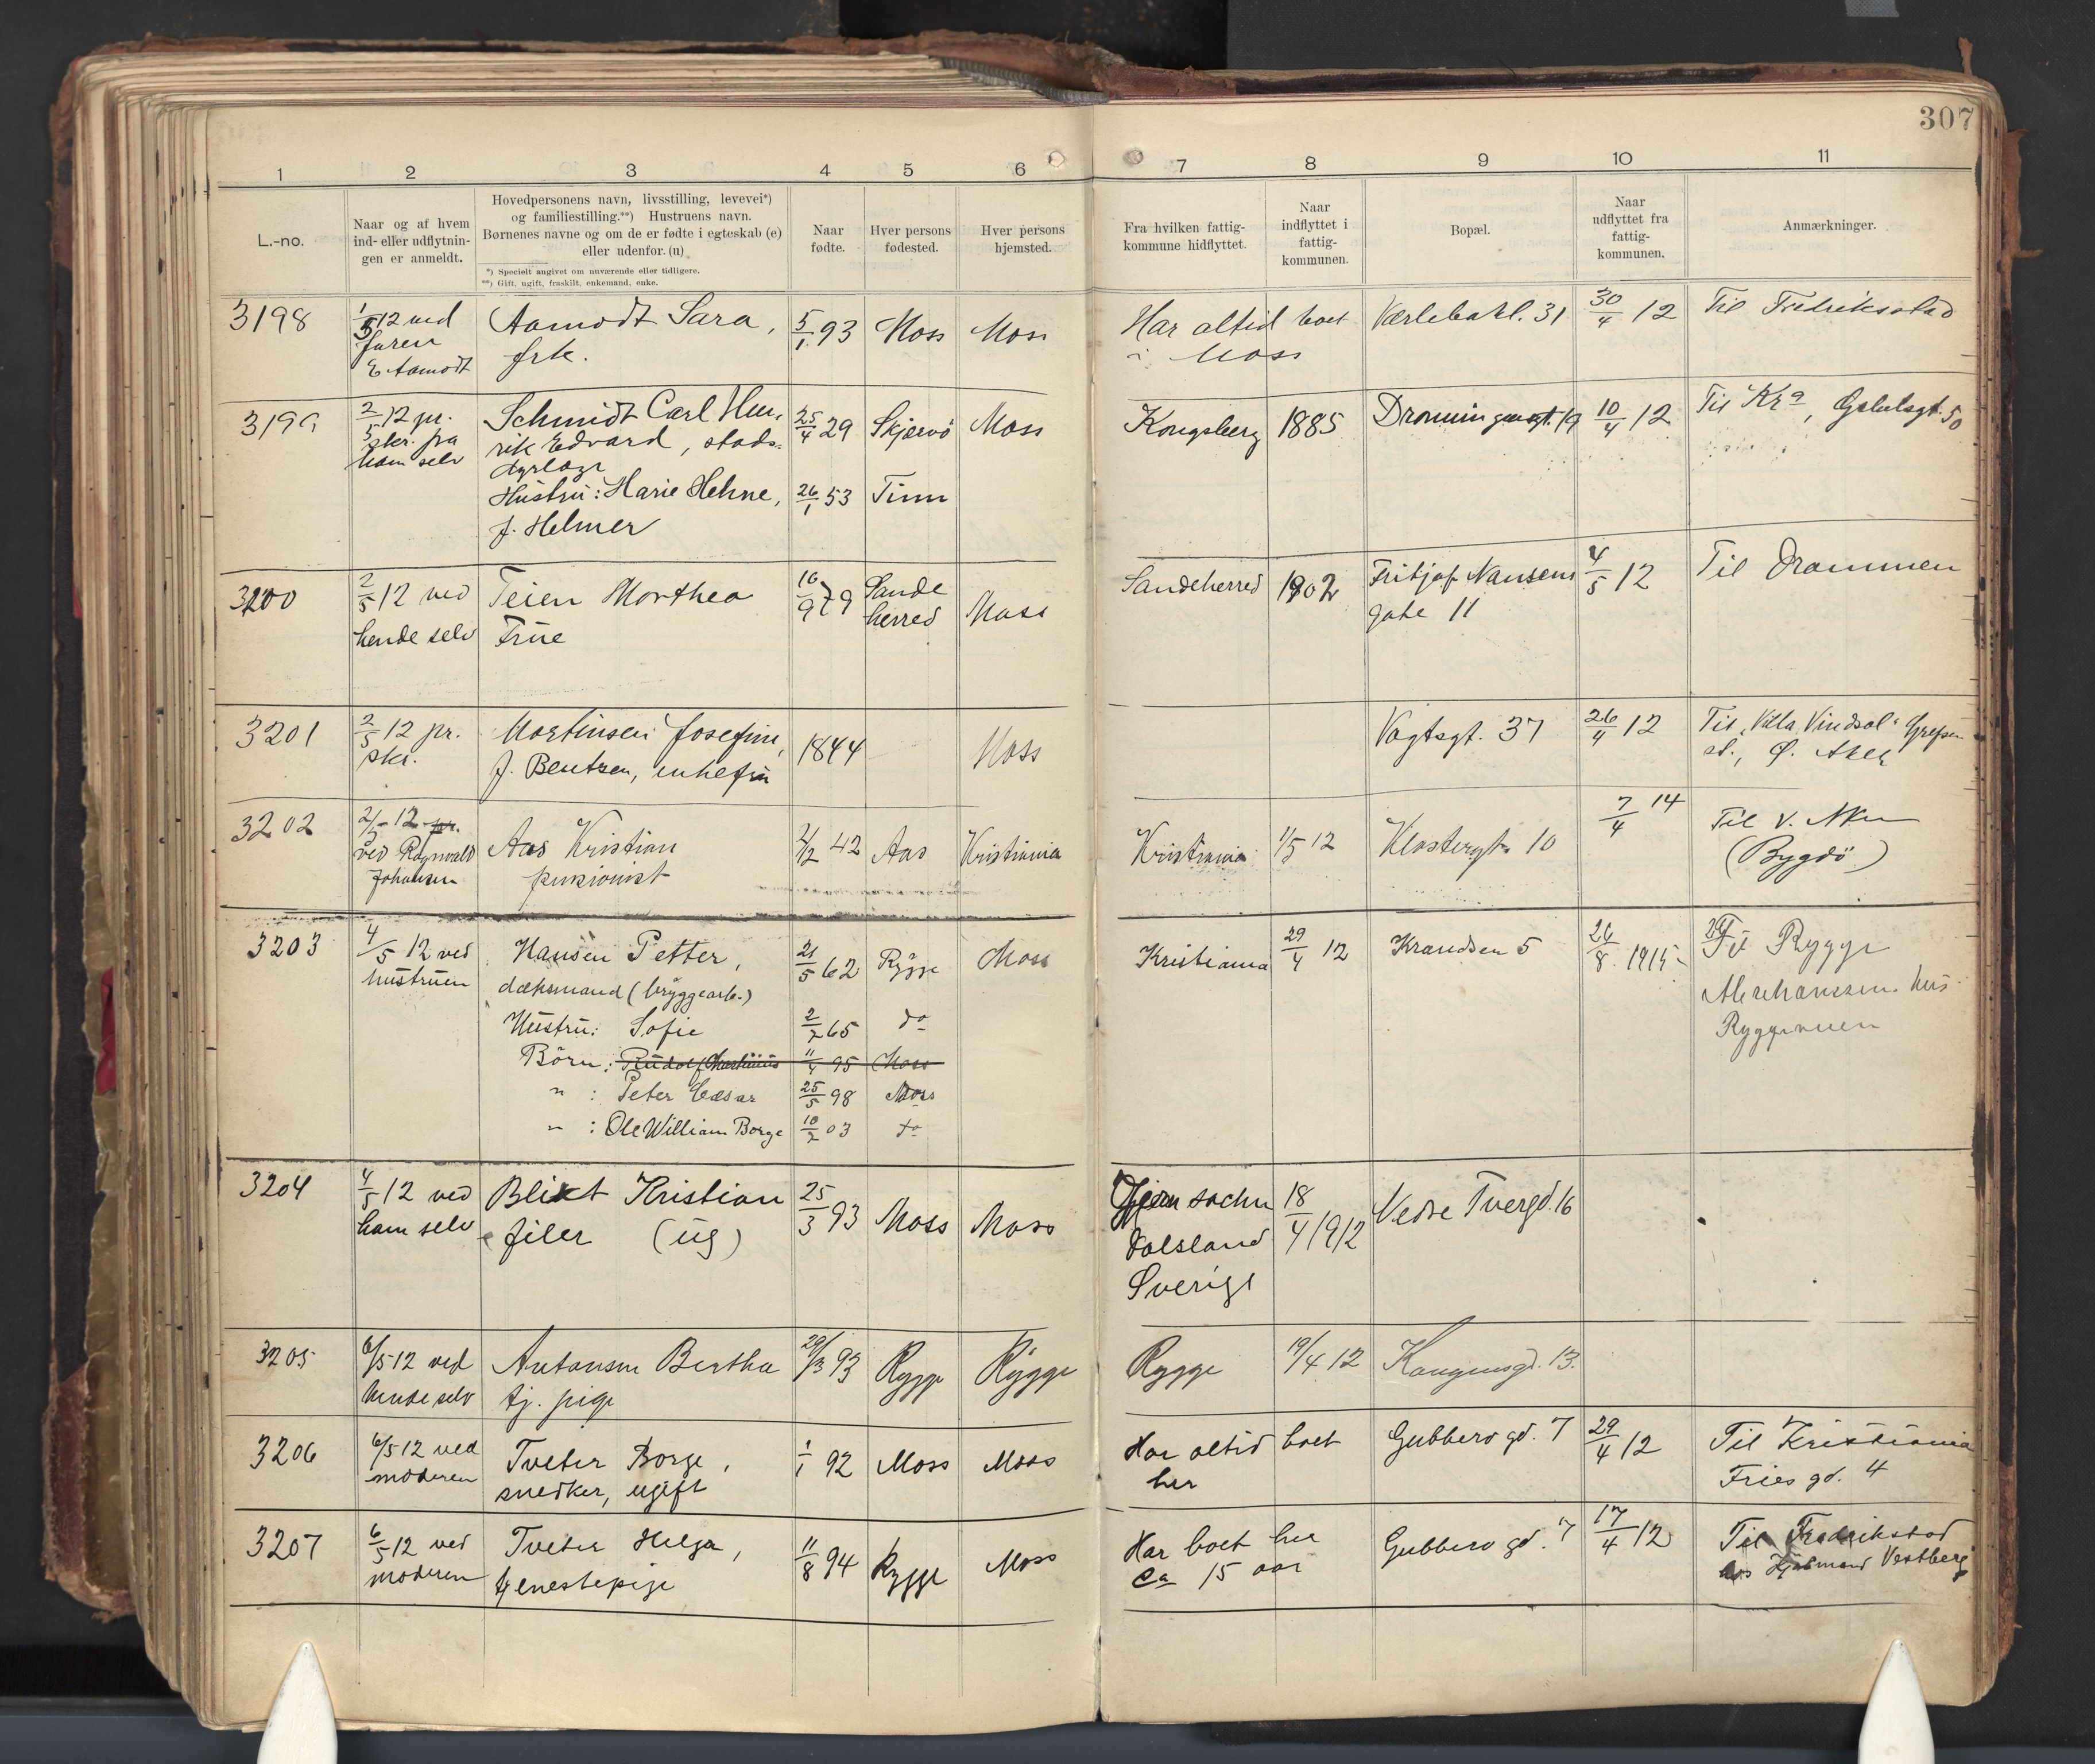 307
1 2 3 4 5 6 7 8 9 10 11
L.-no.
Naar og af hvem
ind- eller udflytnin-
gen er anmeldt.
Hovedpersonens navn, livsstilling, levevei*)
og familiestilling.**) Hustruens navn.
Børnenes navne og om de er fødte i egteskab (e)
eller udenfor. (u)
*) Specielt angivet om nuværende eller tidligere.
**) Gift, ugift, fraskilt, enkemand, enke.
Naar
fødte.
Hver persons
fødested.
Hver persons
hjemsted.
Fra hvilken fattig-
kommune hidflyttet.
Naar
indflyttet i
fattig-
kommunen.
Bopæl.
Naar
udflyttet fra
fattig-
kommunen.
Anmærkninger.
3198
1/5 12 ved
faren
E Aamodt
Aamodt Sara,
frk.
5/1 93
Moss
Moss
Har altid boet
i Moss
Værlebakl. 31
30/4 12
Til Fredriksstad
3199
2/5 12 pr.
skr. fra
ham selv
Schmidt Carl Hen-
rik Edvard, stads-
dyrlæge
Hustru: Marie Helene,
f. Helmer
25/4 29
26/1 53
Skjærvö
Tinn
Moss
Kongsberg
1885
Dronningensgt. 19
10/4 12
Til Kra, 50
3200
2/5 12 ved
hende selv
Teien Morthea
Frue
16/9 79
Sande
herred
Moss
Sandeherred
1902
Fritjof Nansens
gate 11
4/5 12
Til Drammen
3201
2/5 12 pr.
skr.
Martinsen Josefine,
f. Bentzen, enkefru
1844
Moss
Vogtsgt. 37
26/4 12
Til "Villa Vindsol" Grefsen
st., Ø. Aker
3202
2/5 12 pr.
ved Ragnvald
Johansen
Aas Kristian
pensionist
2/2 42
Aas
Kristiania
Kristiania
1/5 12
Klostergt. 10
7/4 14
Til V. Aker
(Bygdö)
3203
4/5 12 ved
hustruen
Hansen Petter,
dæksmand (bryggearb.)
Hustru: Sofie
Börn: Rudolf Martinius
" : Peter Cæsar
" : Ole William Borge
21/5 62
2/2 65
11/4 95
25/5 98
10/2 03
Rygge
do
Moss
Moss
do
Moss
Kristiania
29/4 12
Krandsen 5
26/8 1915
Til Rygge
hus
3204
4/5 12 ved
ham selv
Blixt Kristian
filer (ug)
25/3 93
Moss
Moss
Dalsland
Sverige
18/4 1912
Vedre Tvergd. 16
3205
6/5 12 ved
hende selv
Antonsen Bertha
tj. pige
29/3 93
Rygge
Rygge
Rygge
19/4 12
Kongensgd. 13.
3206
6/5 12 ved
moderen
Tveter Borge,
snedker, ugift
1/1 92
Moss
Moss
Har altid boet
her
Gubbero gd. 7
29/4 12
Til Kristiania
Fries gd. 4
3207
6/5 12 ved
moderen
Tveter Helga,
tjenestepige
11/8 94
Rygge
Moss
Har boet her
ca 15 aar
Gubbero gd. 7
17/4 12
Til Fredrikstad
hos Kjöbmand Vestberg